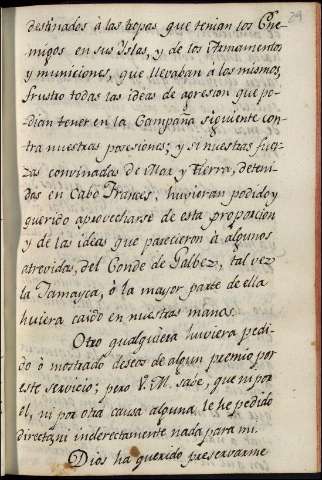 29
destinados à las tropas que tenian los Ene-
migos en sus Yslas, y de los Armamentos
y municiones, que llevaban à los mismos,
frustro todas las ideas de agresion que po-
dian tener en la Campaña siguiente con-
tra nuestras posesiones; y si nuestras fuer-
zas convinadas de Mar y Tierra, deteni-
das en Cabo Frances, huvieran podido y
querido aprovecharse de esta proporcion
y de las ideas que parecieron à algunos
atrevidas, del Conde de Galbez, tal vez
la Jamayca, ò la mayor parte de ella
huiera caido en nuestras manos.
Otro qualquiera huviera pedi-
do ò mostrado deseos de algun premio por
este servicio; pero V. M. sabe, que ni por
el, ni por otra causa alguna, le he pedido
directa, ni inderectamente nada para mi.
Dios ha querido preservarme